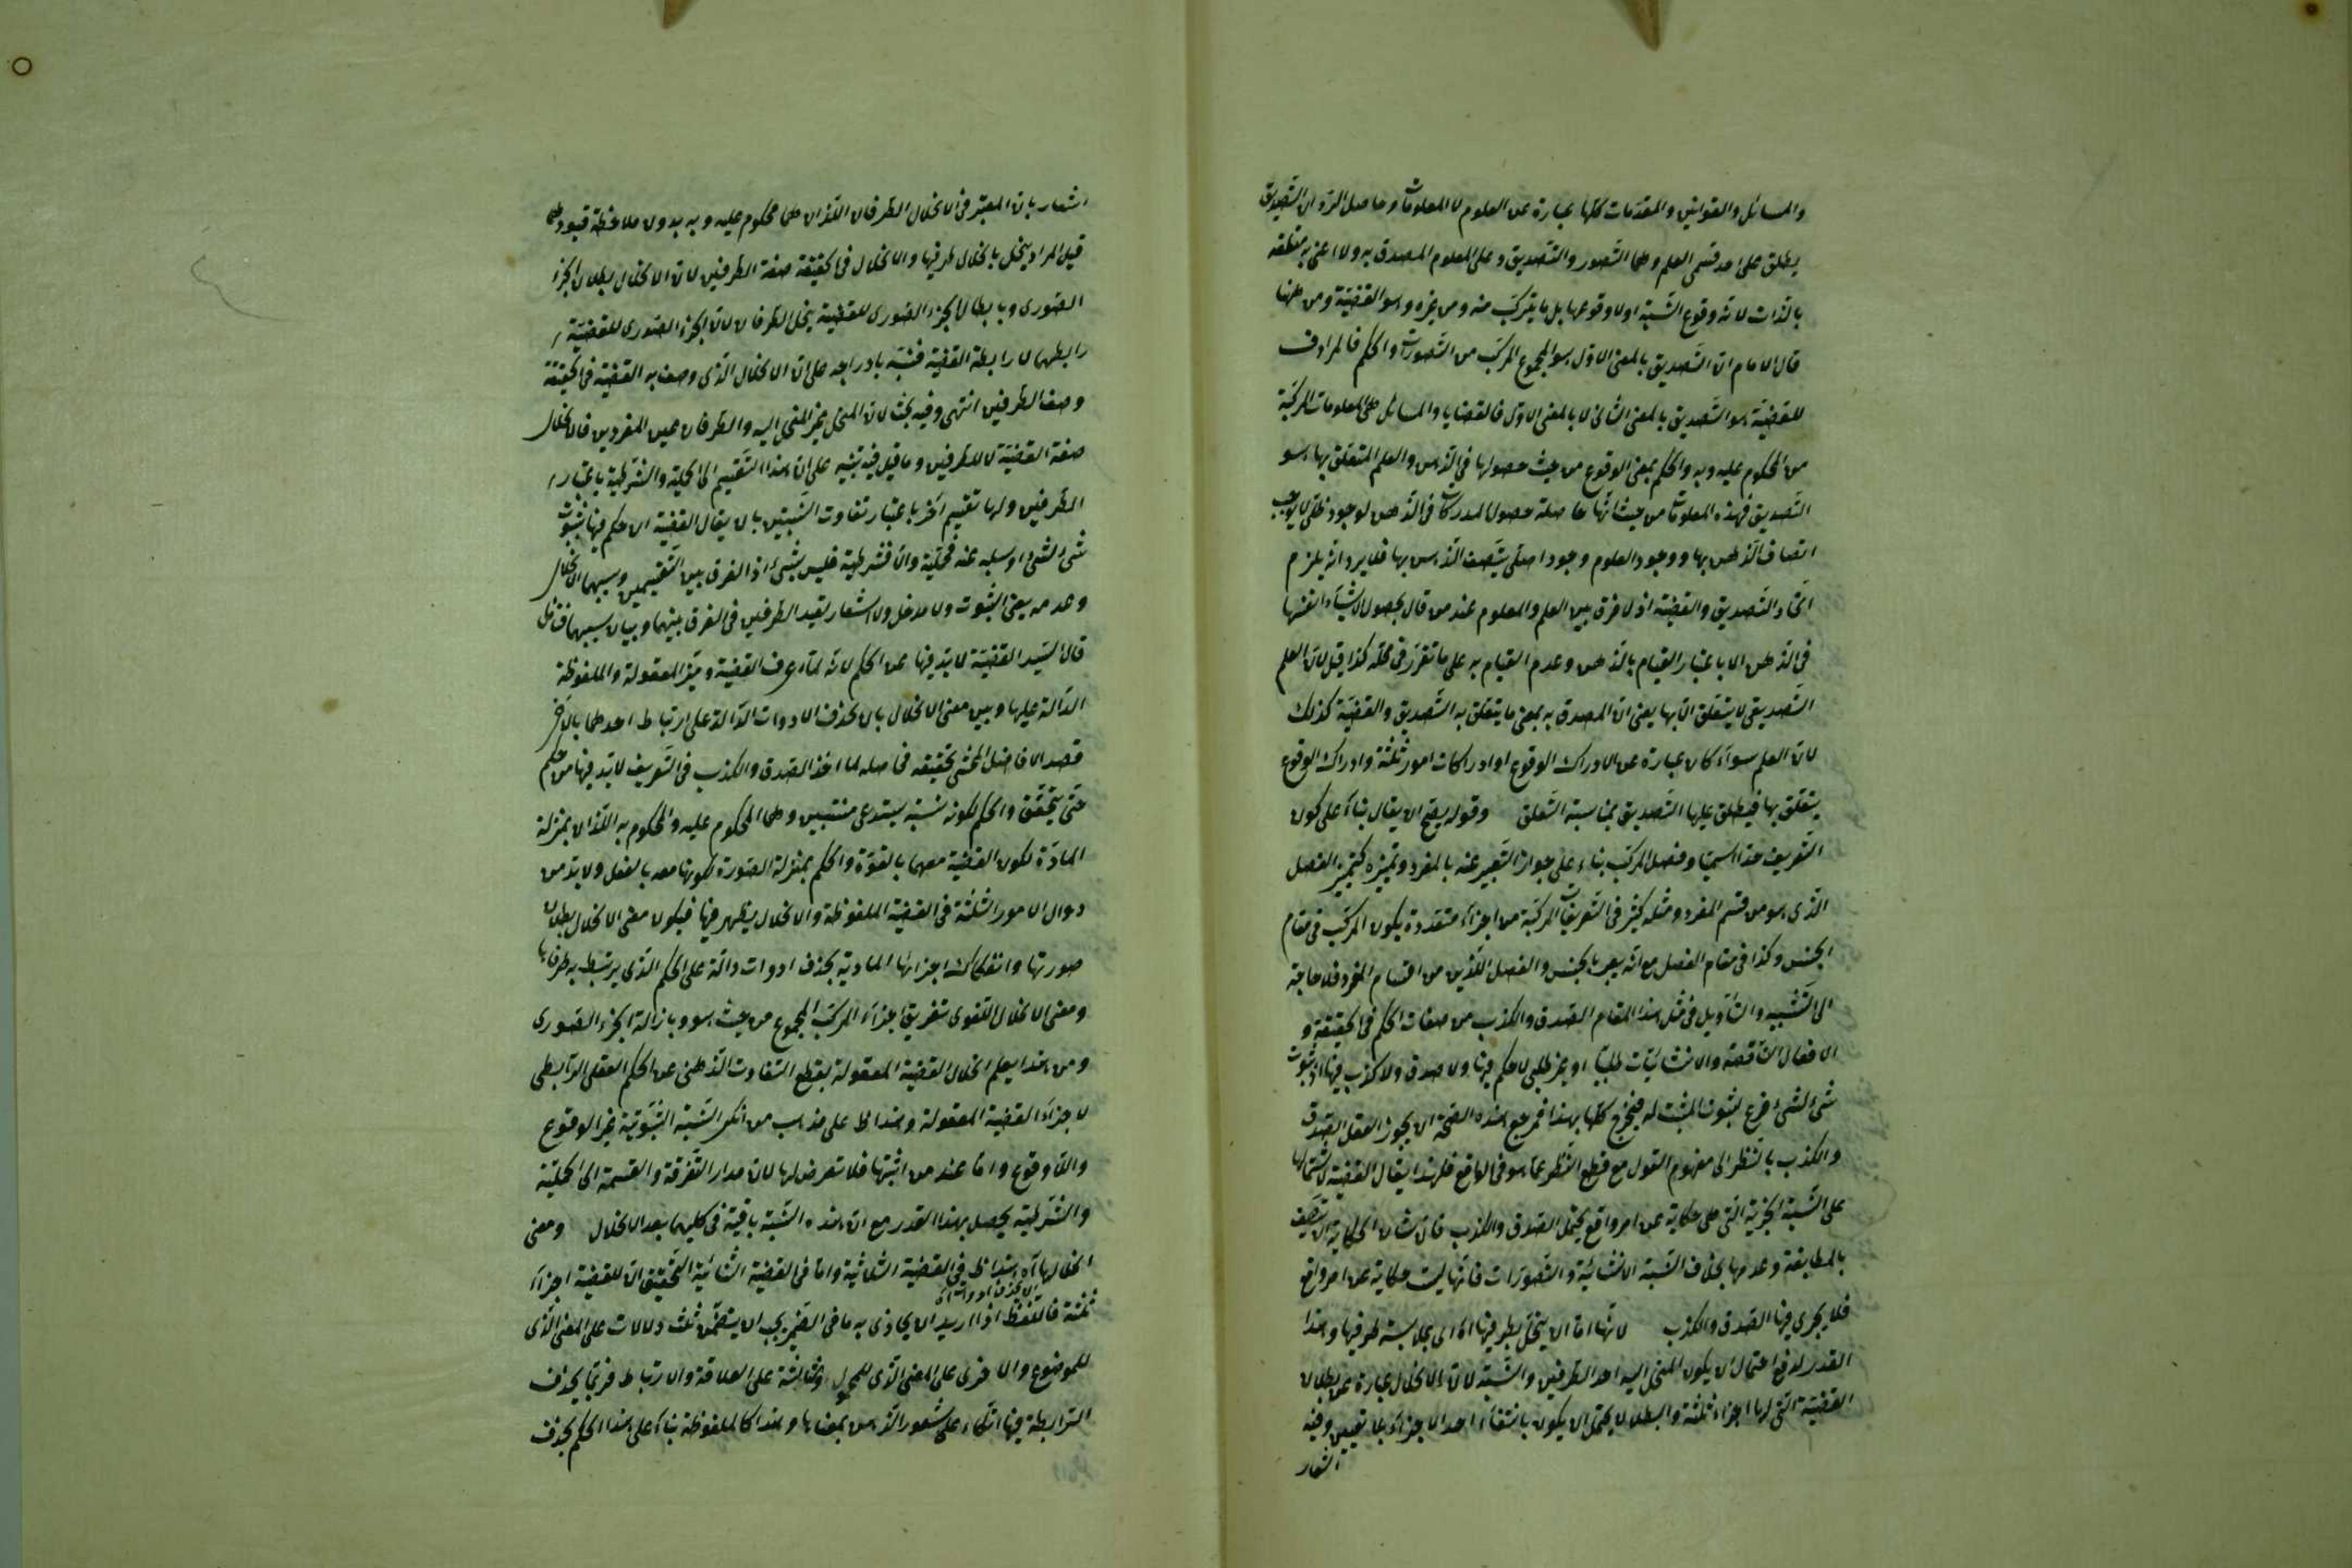 والمسائل والقوانين والمقدمات كلها عبارة عن العلوم لا المعلومات وحاصل الرد ان التصديق
يطلق على احد قسمي العلم وهما التصور والتصديق وعلى المعلوم المصدق به ولا اعنى به متعلقه
بالذات لانه وقوع النسبة اولا وقوعها بل ما يتركب منه ومن غيره وهو القضية ومن ههنا
قال الامام ان التصديق بالمعنى الاول هو المجموع المركب من التصورات والحكم فالمرادف
للقضية هو التصديق بالمعنى الثانى لا بالمعنى الاول فالقضايا والمسائل هى المعلومات المركبة
من المحكوم عليه وبه والحكم بمعنى الوقوع من حيث حصولها فى الذهن والعلم المتعلق بها هو
التصديق فهذه المعلومات من حيث انها حاصلة حصول المدركات فى الذهن لوجود ظلى لا يوجب
اتصاف الذهن بها ووجود العلوم وجود اصلى يتصف الذهن بها فلا يرد انه يلزم
اتحاد التصديق والقضية اذ لا فرق بين العلم والمعلوم عند من قال بحصول الاشياء انفسها
فى الذهن الا باعتبار القيام بالذهن وعدم القيام به على ما تقرر فى محله كذا قيل لان العلم
التصديقى لا يتعلق الا بها يعنى ان المصدق به بمعنى ما يتعلق به التصديق والقضية كذلك
لان العلم سواء كان عبارة عن الادراك الوقوع او ادراكات امور ثلثة وادراك الوقوع
يتعلق بها فيطلق عليها التصديق بمناسبة التعلق وقوله يصح ان يقال بناء على كون
التعريف حدا اسميا وفصل المركب بناء على جواز التعبير عنه بالمفرد وتميزه كتمييز الفصل
الذى هو من قسم المفرد ومثله كثير فى التعريفات المركبة من اجزاء متعددة يكون المركب فى مقام
الجنس وكذا فى مقام الفصل مع انه يعبر بالجنس والفصل اللذين من اقسام المفرد فلا حاجة
الى التشبيه والتأويل فى مثل هذا المقام الصدق والكذب من صفات الحكم فى الحقيقة و
الافعال الناقصة والانشائيات طلبيا او غير طلبى لا حكم فيها ولا صدق ولا كذب فيها اذ ثبوت
شئ لشئ فرع لثبوت المثبت له فيخرج كلها بهذا فمرجع هذه الصحة ان يجوز العقل الصدق
والكذب بالنظر الى مفهوم القول مع قطع النظر عما هو فى الواقع فلهذا يقال القضية لاشتمالها
على النسبة الخبرية التى هى حكاية عن امر واقع يحتمل الصدق والكذب فان شان الحكاية ان يتصف
بالمطابقة وعدمها بخلاف النسبة الانشائية والتصورات فانها ليست حكاية عن امر واقع
فلا يجرى فيها الصدق والكذب لانها اما ان ينحل بطرفيها اه اى بملابسة طرفيها وهذا
القدر لدفع احتمال ان يكون المنحل اليه احد الطرفين والنسبة لان الانحلال عبارة عن بطلان
القضية التى لها اجزاء ثلثة والبطلان لا يحتمل ان يكون بانتفاء احد الاجزاء بلا تعيين وفيه
اشعار
اشعار بان المعتبر فى الانحلال الطرفان اللذان هما محكوم عليه وبه بدون ملاحظة قيودهما
قيل المراد ينحل بانحلال طرفيها والانحلال فى الحقيقة صفة الطرفين لان الانحلال بطلان الجزء
الصورى وبابطال الجزء الصورى للقضية ينحل الطرفان لان الجزء الصورى للقضية
رابطهما لا رابطة القضية فنبه بادراجه على ان الانحلال الذى وصف به القضية فى الحقيقة
وصف الطرفين انتهى وفيه بحث لان المنحل غير المنحل اليه والطرفان عين المفردين فالانحلال
صفة القضية لا للطرفين وما قيل فيه تنبيه على ان هذا التقسيم الى الحملية والشرطية باعتبار
الطرفين ولها تقسيم آخر باعتبار تفاوت النسبتين بان يقال القضية ان حكم فيها بثبوت
شئ لشئ او سلبه عنه فحملية والا فشرطية فليس بشئ اذ الفرق بين التقسيمين وسببهما الانحلال
وعدمه يعنى الثبوت ولا مدخل ولا اشعار بقيد الطرفين فى الفرق بينهما وبيان سببهما فتامل
قال السيد القضية لا بد فيها من الحكم لانه لما عرف القضية وميز المعقولة والملفوظة
الدالة عليها وبين معنى الانحلال بان يحذف الادوات الدالة على ارتباط احدهما بالاخر
قصد الفاضل المحشى تحقيقه فحاصله لما اخذ الصدق والكذب فى التعريف لا بد فيها من حكم
حتى يتحقق والحكم لكونه نسبة يستدعى منتسبين وهما المحكوم عليه والمحكوم به اللذان بمنزلة
المادة لكون القضية معهما بالقوة والحكم بمنزلة الصورة لكونها معه بالفعل ولا بد من
دوال الامور الثلثة فى القضية الملفوظة والانحلال يظهر فيها فيكون معنى الانحلال بطلان
صورتها وانفكاك اجزائها المادية بحذف ادوات دالة على الحكم الذى يرتبط به طرفاها
ومعنى الانحلال اللغوى تفريق اجزاء المركب المجموع من حيث هو وبازالة الجزء الصورى
ومن هذا يعلم انحلال القضية المعقولة بقطع التفاوت الذهنى عن الحكم العقلى الرابطى
لاجزاء القضية المعقولة وهذا على مذهب من انكر النسبة الثبوتية غير الوقوع
واللاوقوع واما عند من اثبتها فلا تعرض لها لان مدار التفرقة والقسمة الى الحملية
والشرطية يحصل بهذا القدر مع ان هذه النسبة باقية فى كليهما بعد الانحلال ومعنى
انحلالها اه هذا فى القضية الثلاثية واما فى القضية الثنائية التحقيق ان للقضية اجزاء
ثلثة فاللفظ اذا اريد ان يحاذى به ما فى الضمير يجب ان يتضمن ثلث دلالات على المعنى الذى
للموضوع والاخرى على المعنى الذى للمحمول وثالثة على العلاقة والارتباط فربما يحذف
الرابطة فيها اتكاء على شعور الذهن بمعناها وهذا كالملفوظة بناء على هذا الحكم بحذف